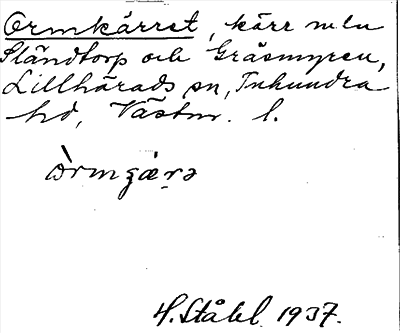 Ormkärret, kärr mln
Ständtorp och Gräsmyren,
Lillhärads sn, Tuhundra
hd, Västm. l.
òrmçærə
H. Ståhl 1937.